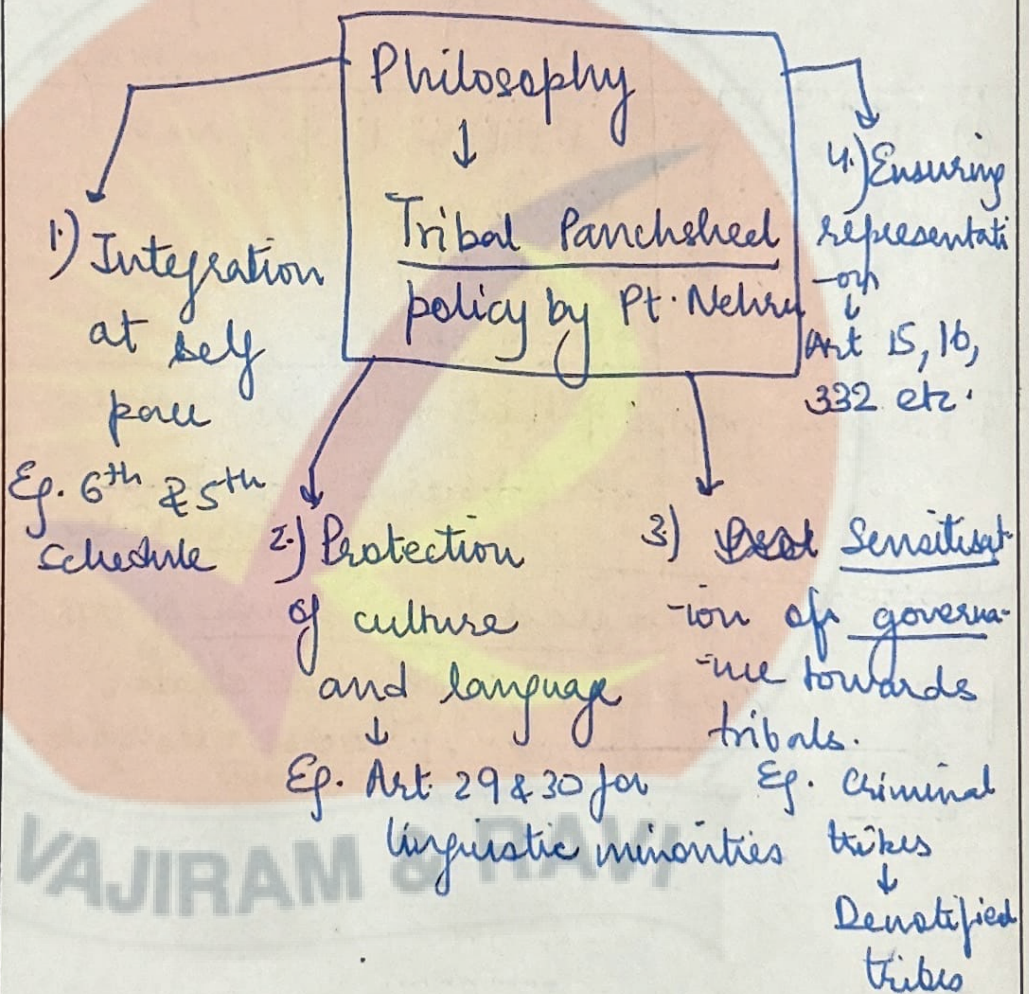 Philosophy
↓
Tribal Panchsheel
policy by Pt. Nehru
1.) Integration
at self
pace
Eg. 6th & 5th
Schedule
2.) Protection
of culture
and language
↓
Eg. Art. 29 & 30 for
linguistic minorities
3.) Sensitisat-
-ion of governa-
-nce towards
tribals.
Eg. Criminal
tribes
↓
Denotified
tribes
4.) Ensuring
representati
-on
↓
Art 15, 16,
332 etc.
VAJIRAM & RAVI